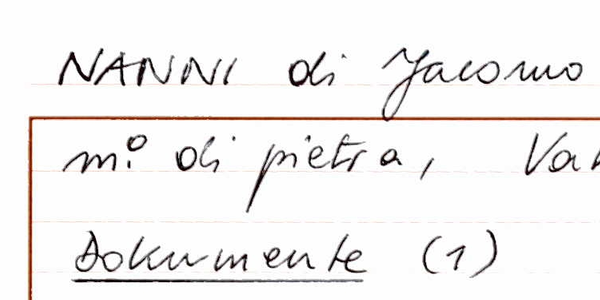 NANNI di Jacomo
m.o di pietra,
Dokumente (1)